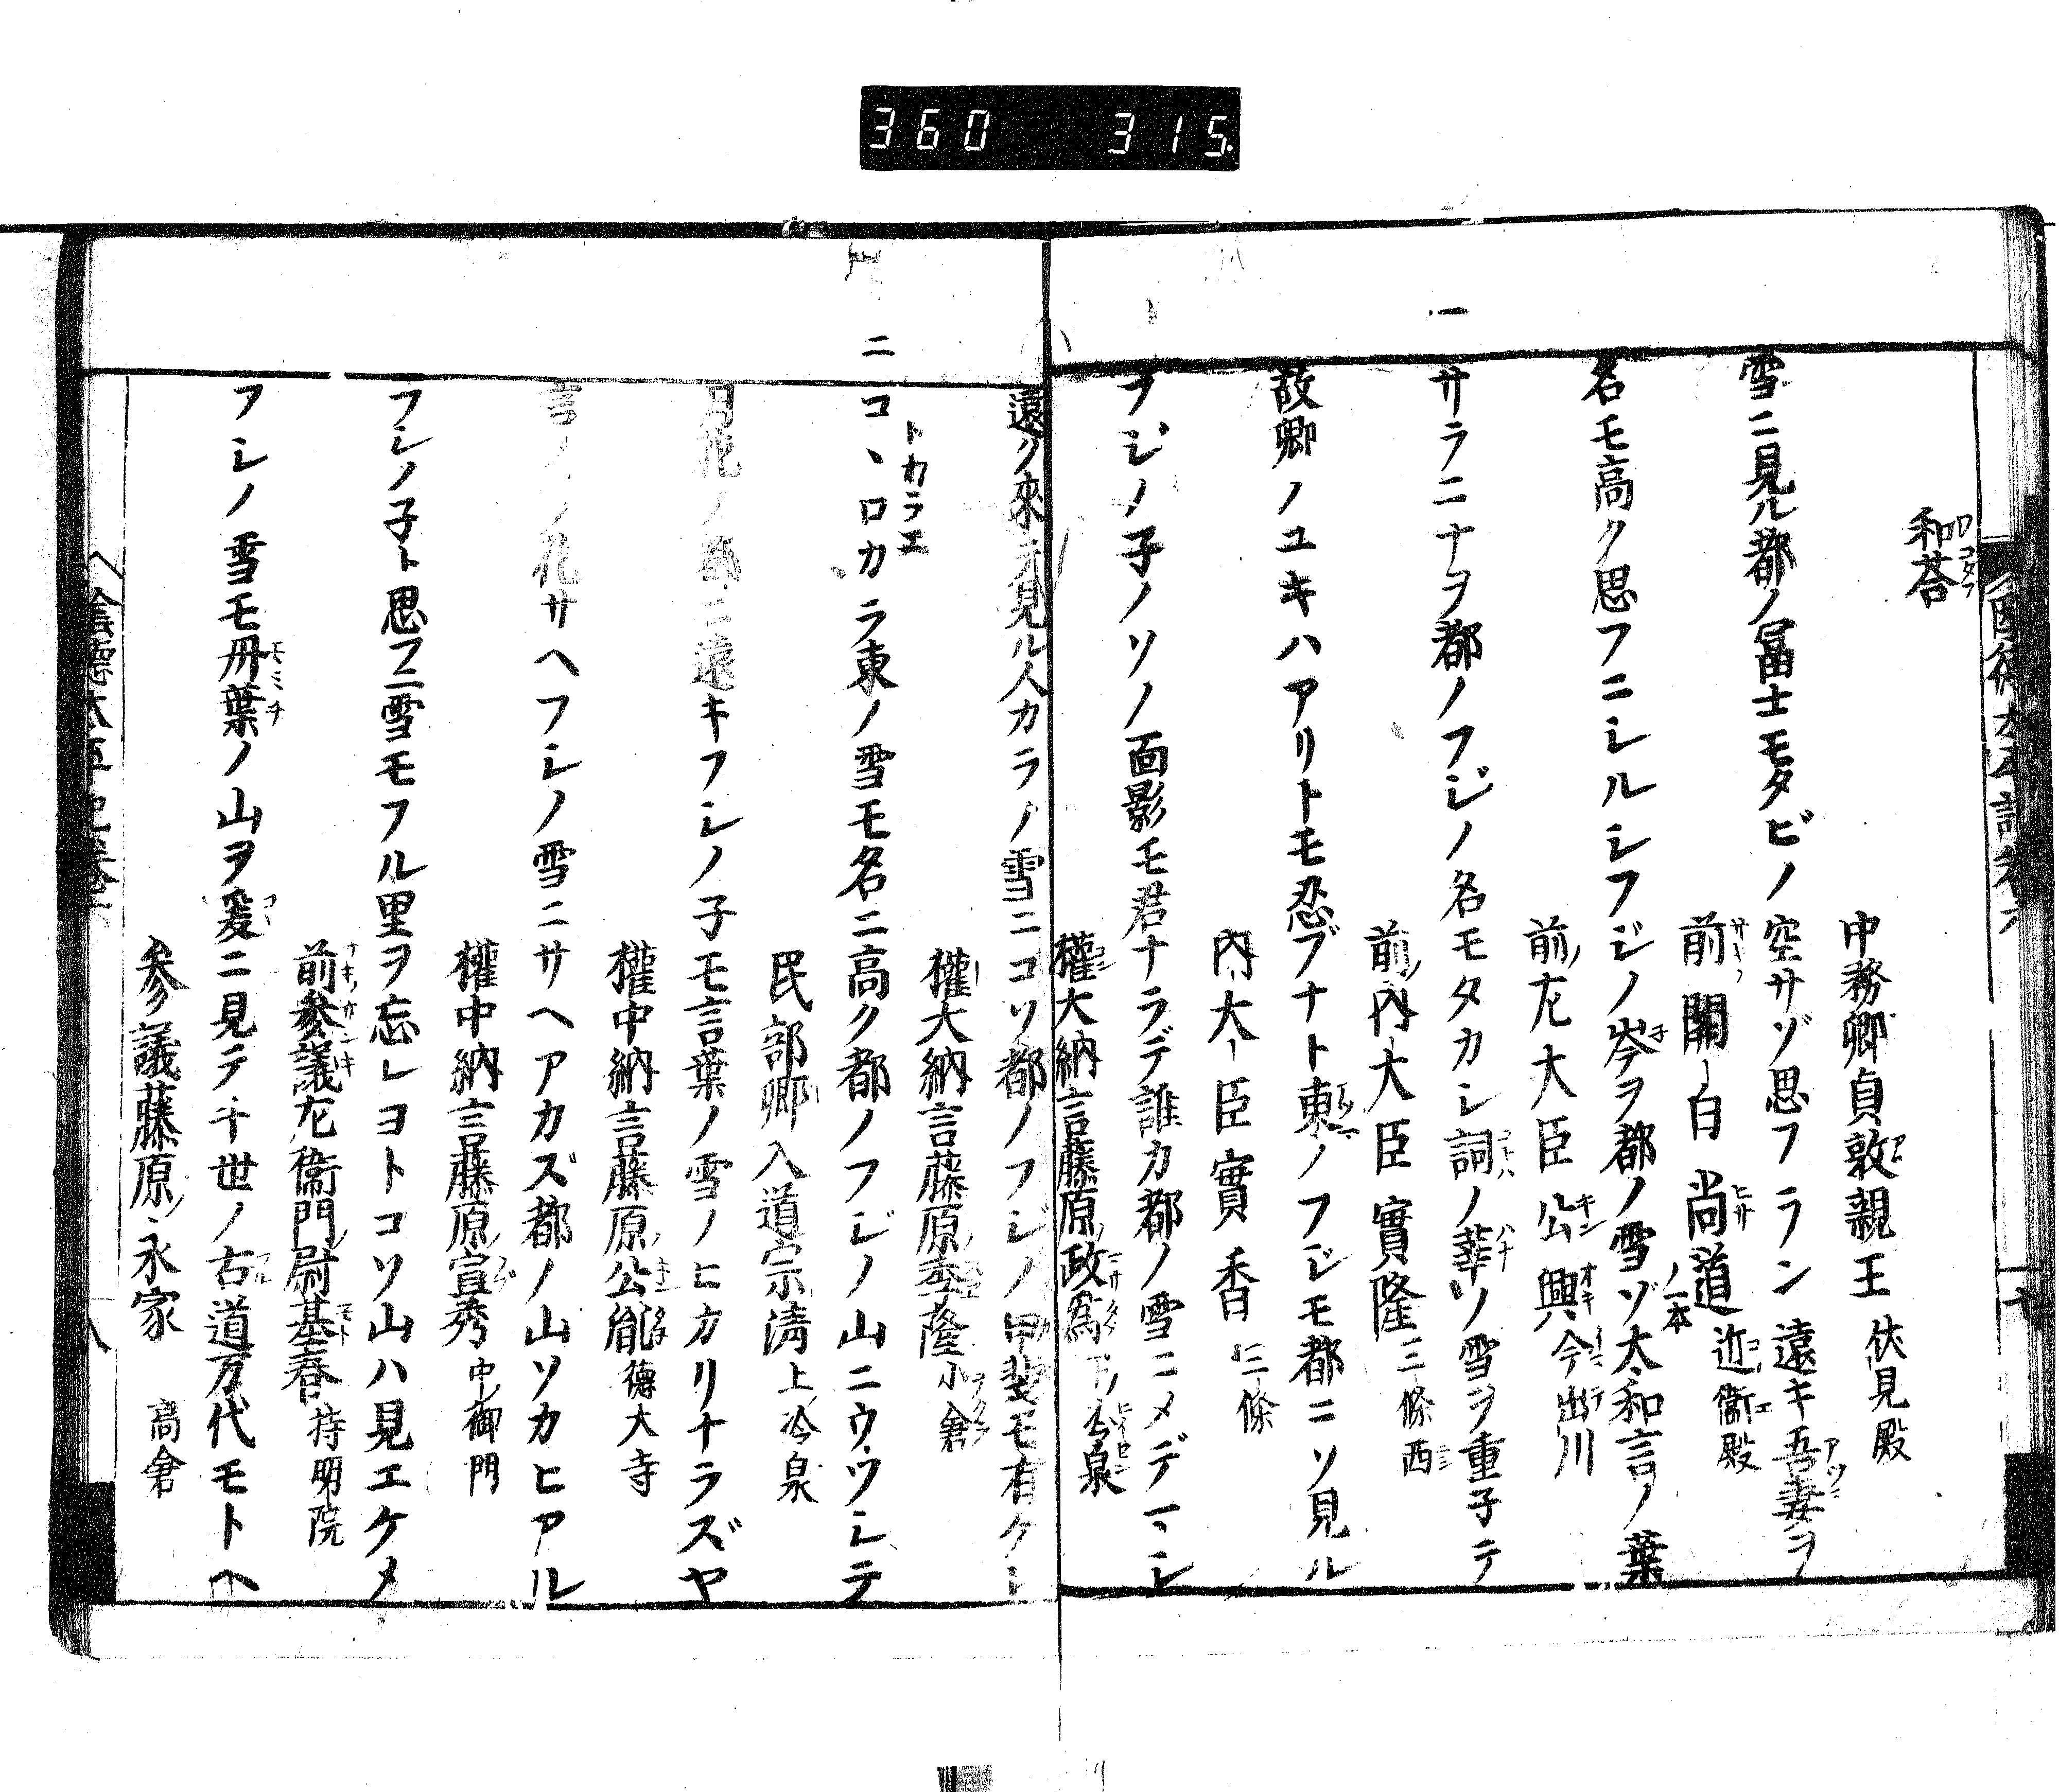 360 315.
和荅
中務卿貞敦親王 伏見殿
雪ニ見ル都ノ冨士モタビノ空サゾ思フラン遠キ吾妻ヲ
前関白尚道 近衞殿
名モ高ク思フニシルシフジノ岑ヲ都ノ雪ゾ太和言ノ葉
ノ一本
前左大臣公興 今出川
サラニナヲ都ノフジノ名モタカシ詞ノ華ソノ雪ヲ重子テ
前内大臣實隆 三條西
故郷ノユキハアリトモ忍ブナト東ノフジモ都ニソ見ル
内大臣實香 三條
フジノ子ノソノ面影モ君ナラデ誰カ都ノ雪ニメデマシ
權大納言藤原政爲 下ノ冷泉
遠ク來テ見ル人カラノ雪ニコソ都ノフジノ甲斐モ有ケレ
權大納言藤原季隆 小倉
トカラエ
コヽロカラ東ノ雪モ名ニ高ク都ノフジノ山ニウツシテ
民部卿入道宗清 上冷泉
月花ノ都ニ遠キフシノ子モ言葉ノ雪ノヒカリナラズヤ
權中納言藤原公胤 德大寺
言ノハノ花サヘフシノ雪ニサヘアカズ都ノ山ソカヒアル
權中納言藤原宣秀 中御門
フシノ子ト思フニ雪モフル里ヲ忘レヨトコソ山ハ見エケメ
前參議左衞門尉基春 持明院
フシノ雪モ丹葉ノ山ヲ爰ニ見テ千世ノ古道万代モトヘ
参議藤原永家 高倉
陰德太平記卷六
八